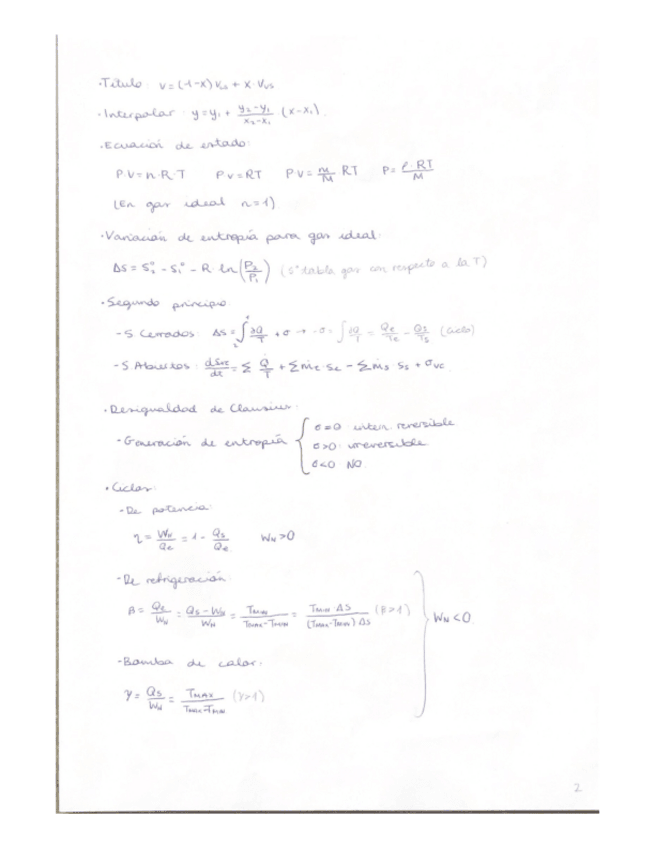 ·Título: v=(1-x)vLS + x·vVS
·Interpolar: y=y₁ + (y₂-y₁)/(x₂-x₁) (x-x₁).
·Ecuación de estado:
P·V=n·R·T    Pv=RT    P·V= m/M RT    P= ρ·RT/M
(En gas ideal n=1)
·Variación de entropía para gas ideal:
ΔS = S₂° - S₁° - R·ln(P₂/P₁) (S° tabla gas con respecto a la T)
·Segundo principio:
-S Cerrados: ΔS=∫ δQ/T + σ → -σ = ∫ δQ/T = Qe/Te - Qs/Ts (Ciclo)
-S Abiertos: dSvc/dt = Σ Q̇/T + Σṁe se - Σṁs ss + σvc
·Desigualdad de Clausius:
-Generación de entropía { σ=0 intern. reversible
σ>0: irreversible
σ<0 NO
·Ciclos:
-De potencia:
η = WN/Qe = 1 - Qs/Qe    WN>0
-De refrigeración:
β = Qe/WN = (Qs-WN)/WN = TMIN/(TMAX-TMIN) = TMIN ΔS/((TMAX-TMIN) ΔS) (β>1) } WN<0
-Bomba de calor:
γ = Qs/WN = TMAX/(TMAX-TMIN) (γ>1)
2